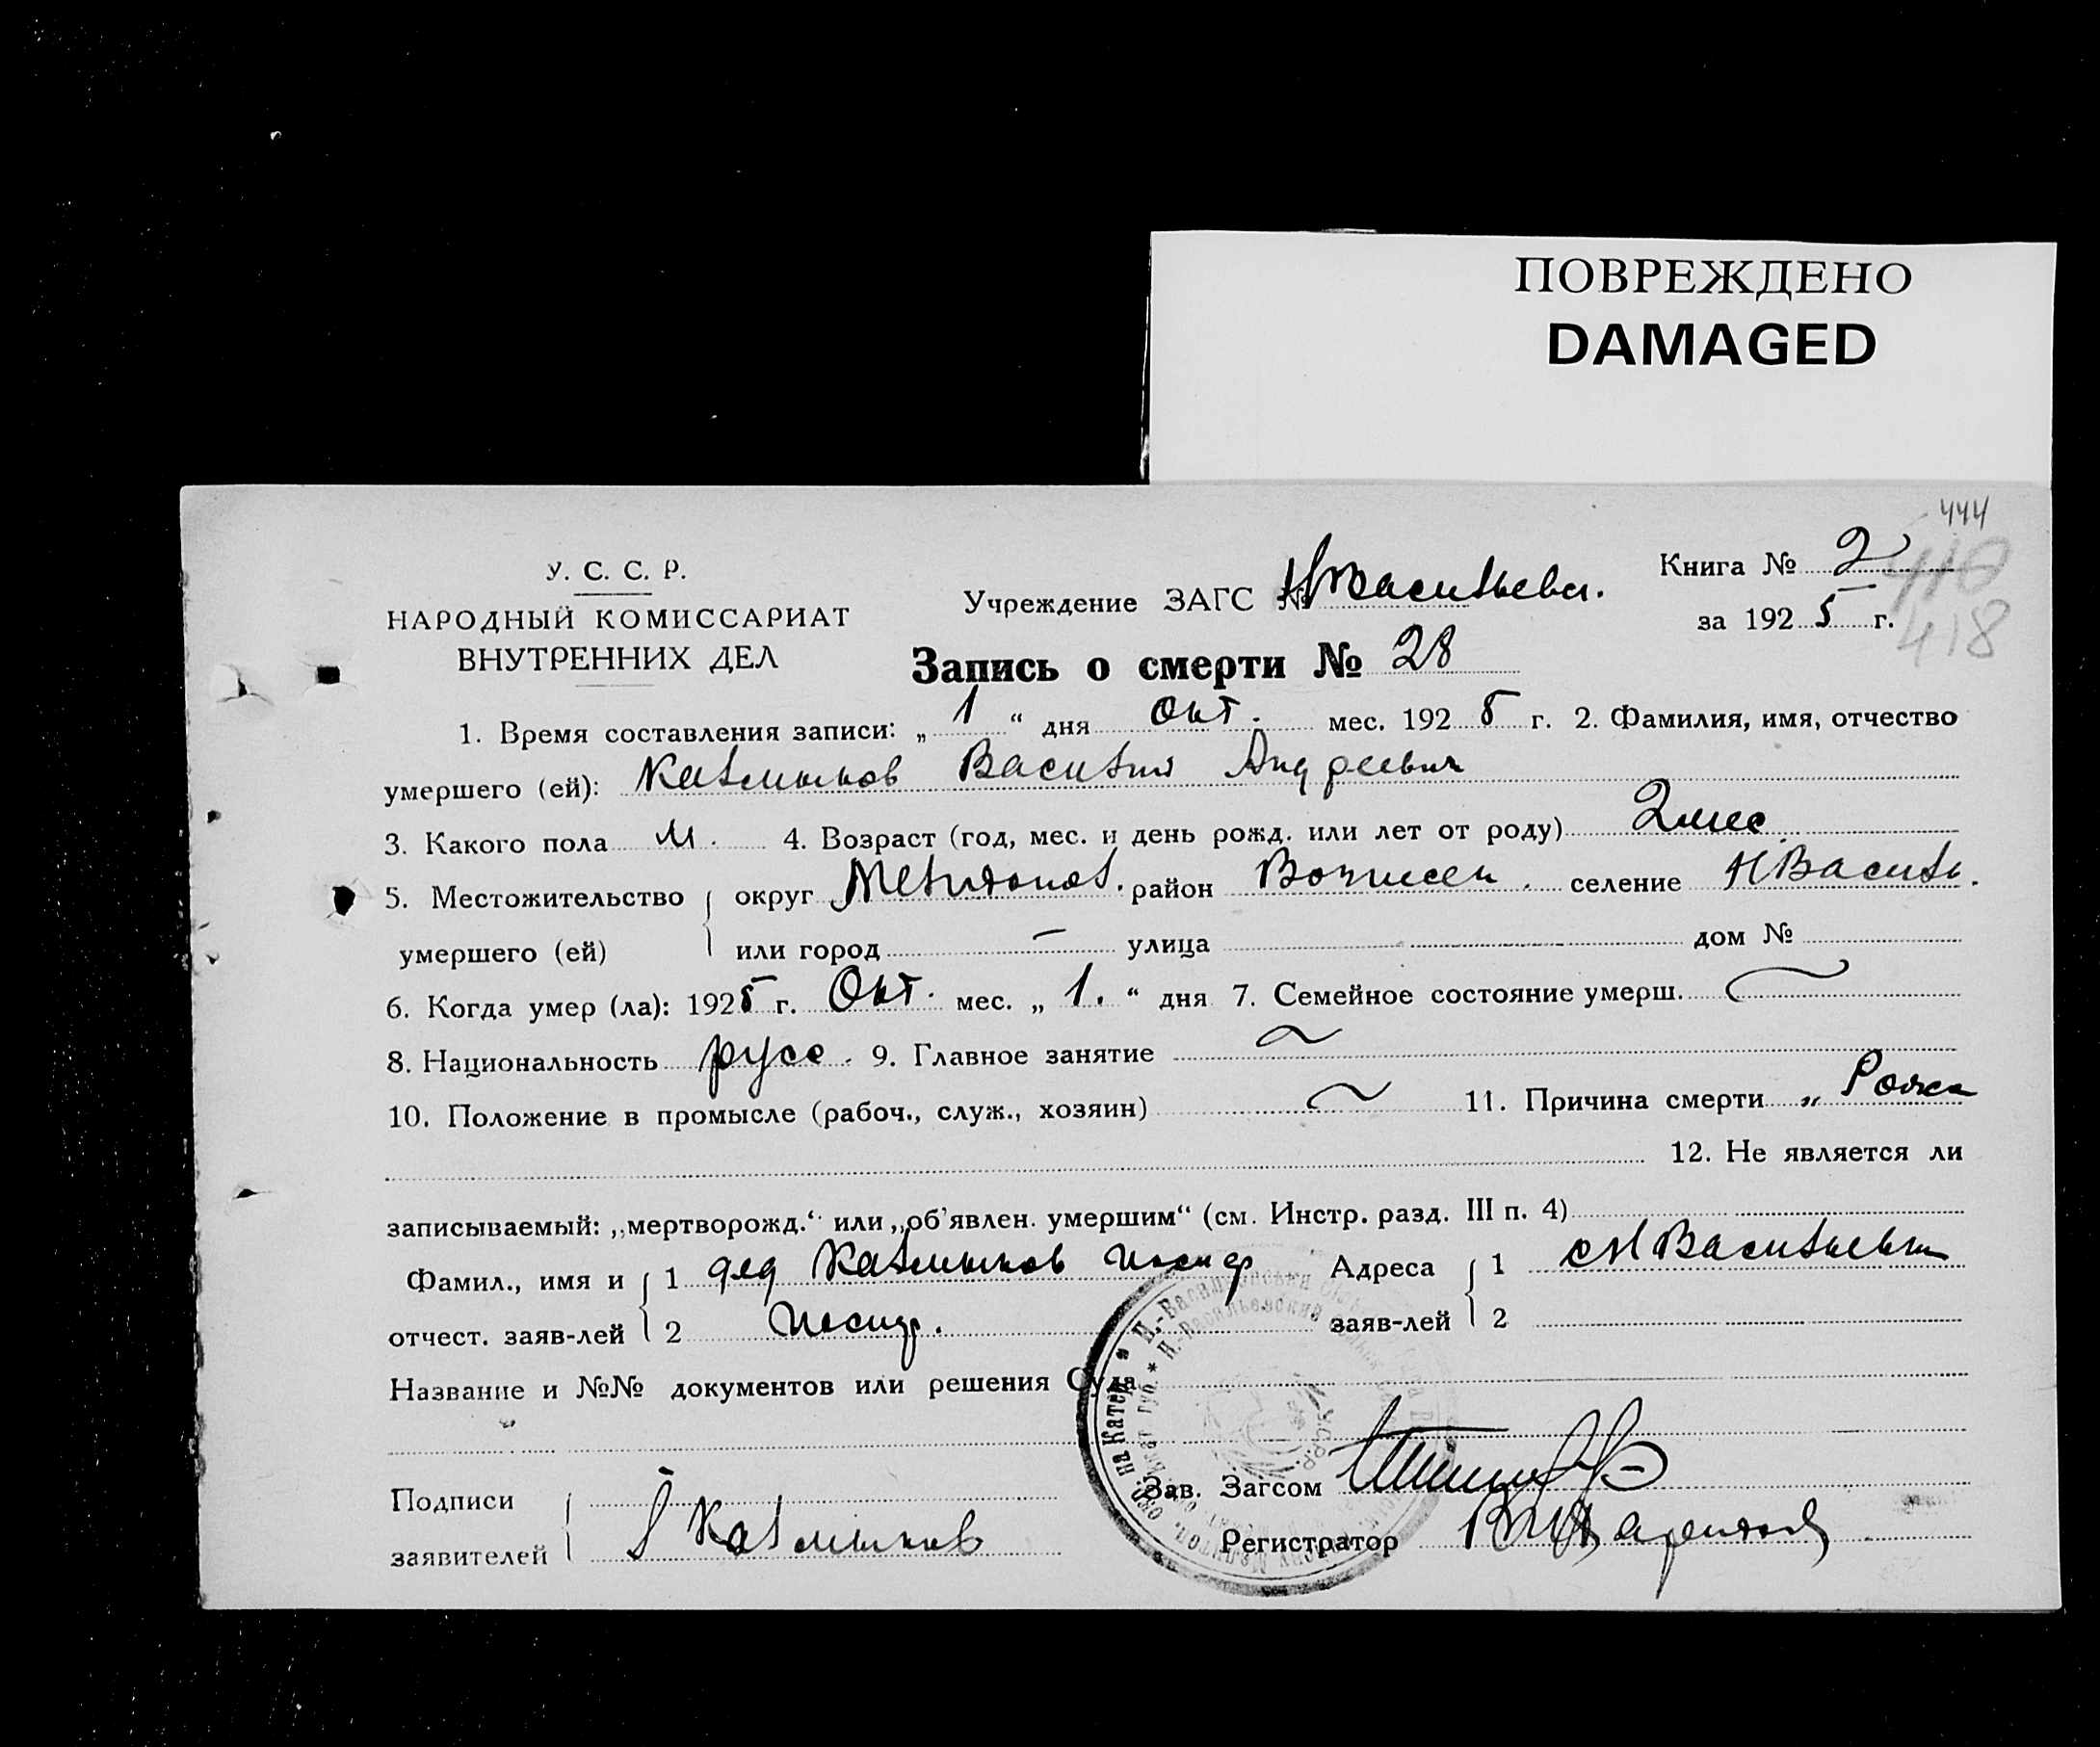 ПОВРЕЖДЕНО
DAMAGED
444
410
418
У. С. С. Р.
НАРОДНЫЙ КОМИССАРИАТ
ВНУТРЕННИХ ДЕЛ
Учреждение ЗАГС № НВасильевск.
Книга № 2
за 1925 г.
Запись о смерти № 28
1. Время составления записи: „ 1 “ дня Окт. мес. 1925 г. 2. Фамилия, имя, отчество
умершего (ей): Калмыков Василий Андреевич
3. Какого пола м. 4. Возраст (год, мес. и день рожд. или лет от роду) 2 мес
5. Местожительство округ Мелитопол. район Вознесен. селение Н.Василь.
умершего (ей) или город — улица дом №
6. Когда умер (ла): 1925 г. Окт. мес. „ 1. “ дня 7. Семейное состояние умерш.
8. Национальность русс. 9. Главное занятие
10. Положение в промысле (рабоч., служ., хозяин) 11. Причина смерти „ Рожа
12. Не является ли
записываемый: „мертворожд.“ или „об’явлен. умершим“ (см. Инстр. разд. III п. 4)
Фамил., имя и 1 дед Калмыков Иосиф Адреса 1 с Н Васильевка
отчест. заяв-лей 2 Иосиф. заяв-лей 2
Название и №№ документов или решения Суда
Зав. Загсом
Подписи
заявителей Калмыков
Регистратор